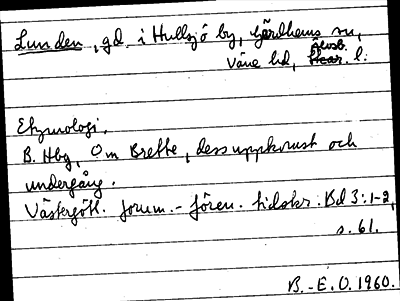 Lunden, gd. i Hullsjö by, Gärdhems sn,
Väne hd, Älvsb. l:
Etymologi.
B. Hbg, Om Brette, dess uppkomst och
undergång.
Västergötl. fornm.-fören. tidskr. Bd 3:1-2,
s. 61.
B.-E.O. 1960.